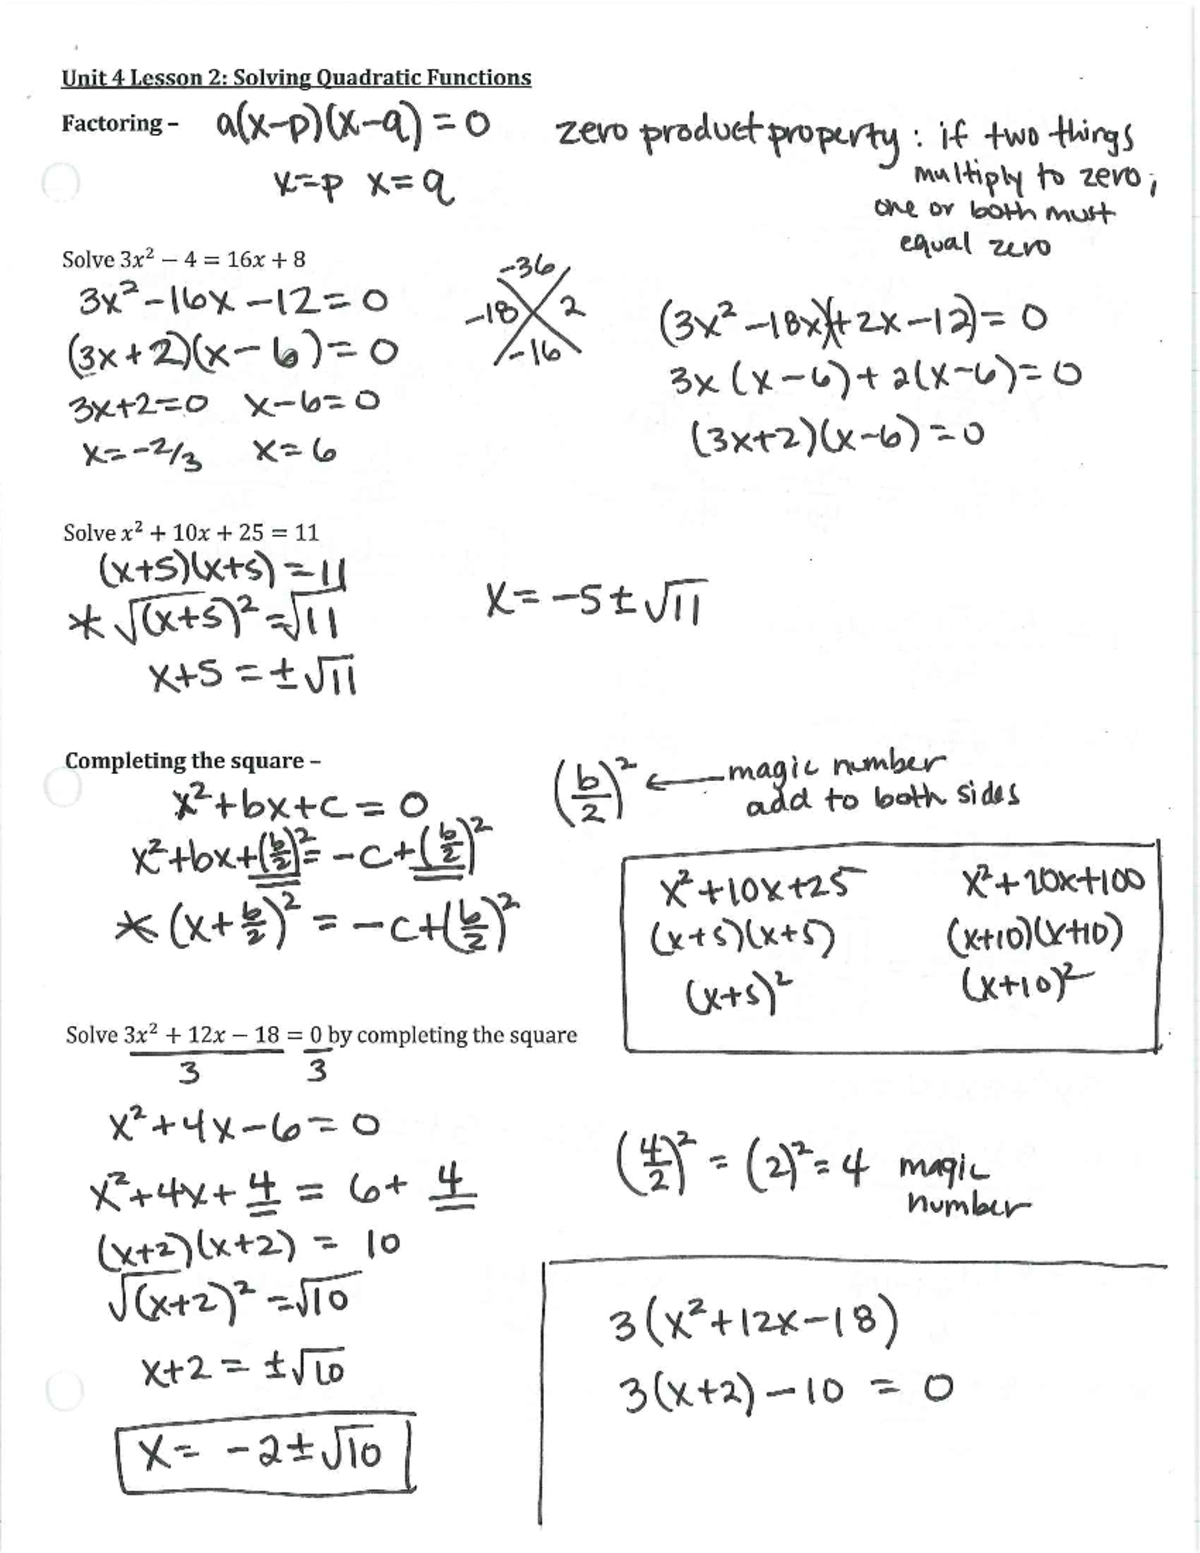 Unit 4 Lesson 2: Solving Quadratic Functions
Factoring – a(x-p)(x-q) = 0
x=p x=q
zero product property : if two things
multiply to zero,
one or both must
equal zero
Solve 3x² − 4 = 16x + 8
3x²-16x-12=0
(3x+2)(x-6)=0
3x+2=0 x-6=0
x=-2/3 x=6
-36
-18 2
-16
(3x²-18x)(+2x-12)=0
3x(x-6)+2(x-6)=0
(3x+2)(x-6)=0
Solve x² + 10x + 25 = 11
(x+5)(x+5)=11
* √(x+5)² = √11
x+5 = ±√11
x=-5±√11
Completing the square –
x²+bx+c=0
x²+bx+(b/2)² = -c+(b/2)²
* (x+b/2)² = -c+(b/2)²
(b/2)² ← magic number
add to both sides
x²+10x+25 x²+20x+100
(x+5)(x+5) (x+10)(x+10)
(x+5)² (x+10)²
Solve 3x² + 12x − 18 = 0 by completing the square
3 3
x²+4x-6=0
x²+4x+4 = 6+4
(x+2)(x+2) = 10
√(x+2)² = √10
x+2 = ±√10
x = -2±√10
(4/2)² = (2)² = 4 magic
number
3(x²+12x-18)
3(x+2)-10 = 0